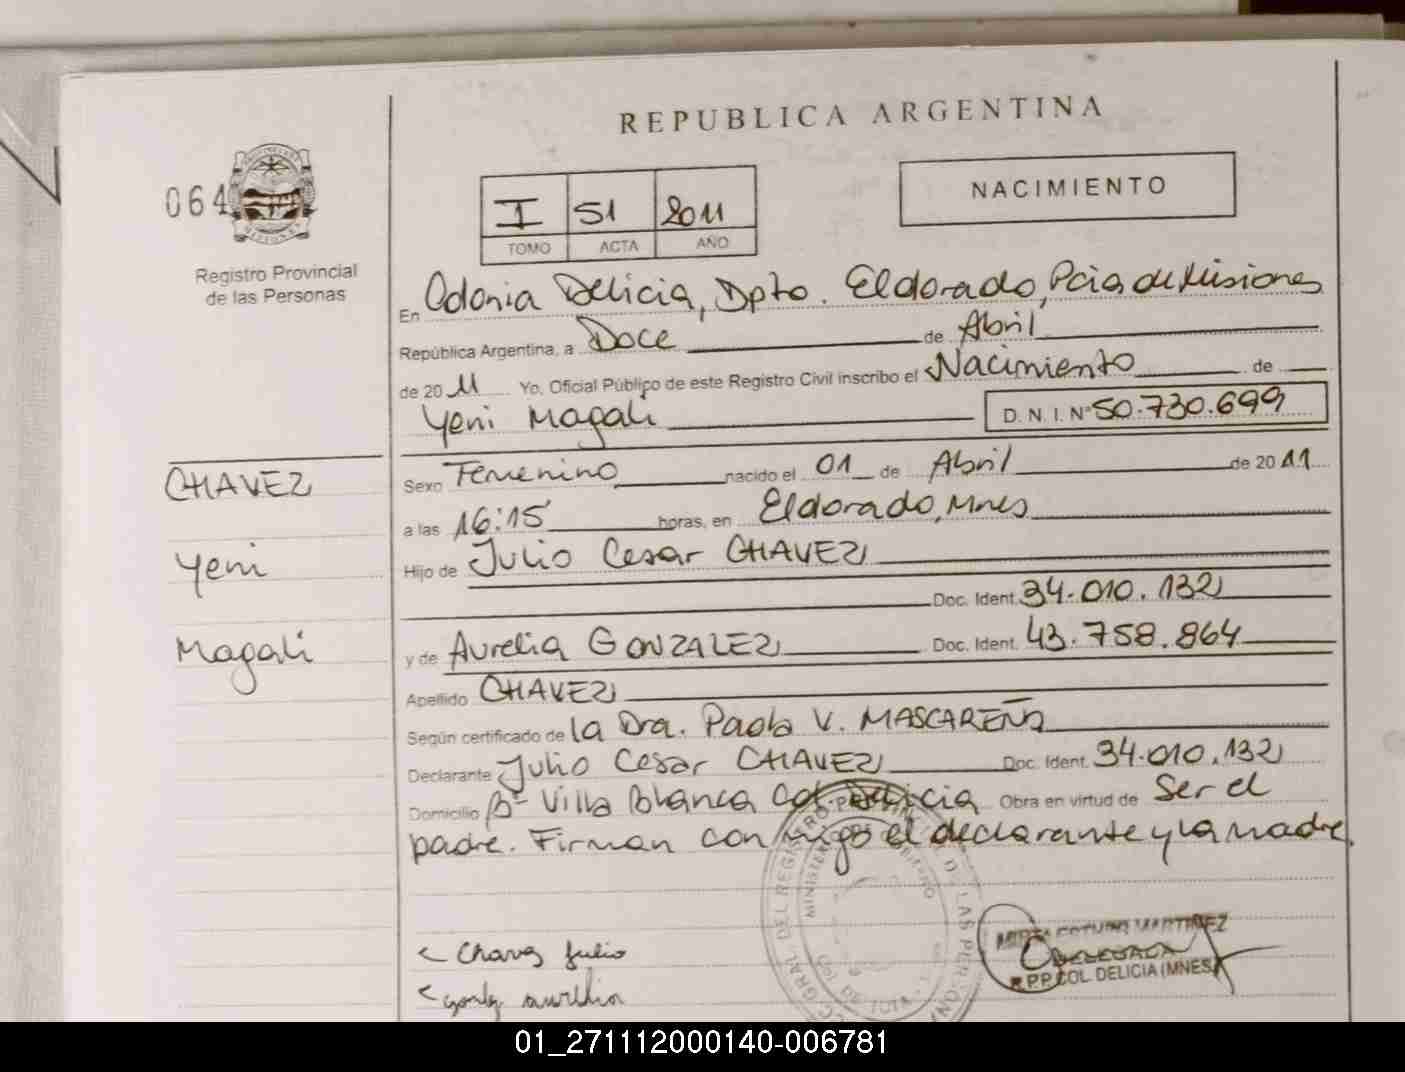 REPUBLICA ARGENTINA
064
I 51 2011
TOMO ACTA AÑO
NACIMIENTO
Registro Provincial
de las Personas
En Colonia Delicia, Dpto. Eldorado, Pcia de Misiones
República Argentina, a Doce de Abril
de 2011 Yo, Oficial Público de este Registro Civil inscribo el Nacimiento de
Yeni Magali D. N. I. Nº 50.730.699
CHAVEZ
Yeni
Magali
Sexo Femenino nacido el 01 de Abril de 2011
a las 16:15 horas, en Eldorado, Mnes
Hijo de Julio Cesar CHAVEZ
Doc. Ident. 34.010.132
y de Aurelia GONZALEZ Doc. Ident. 43.758.864
Apellido CHAVEZ
Según certificado de la Dra. Paola V. MASCAREÑO
Declarante Julio Cesar CHAVEZ Doc. Ident. 34.010.132
Domicilio Bº Villa Blanca Col. Delicia Obra en virtud de Ser el
padre. Firman conmigo el declarante y la madre.
Chavez Julio
aurelia
MARTINEZ
DELEGADA
R.P.P. COL. DELICIA (MNES)
01_271112000140-006781